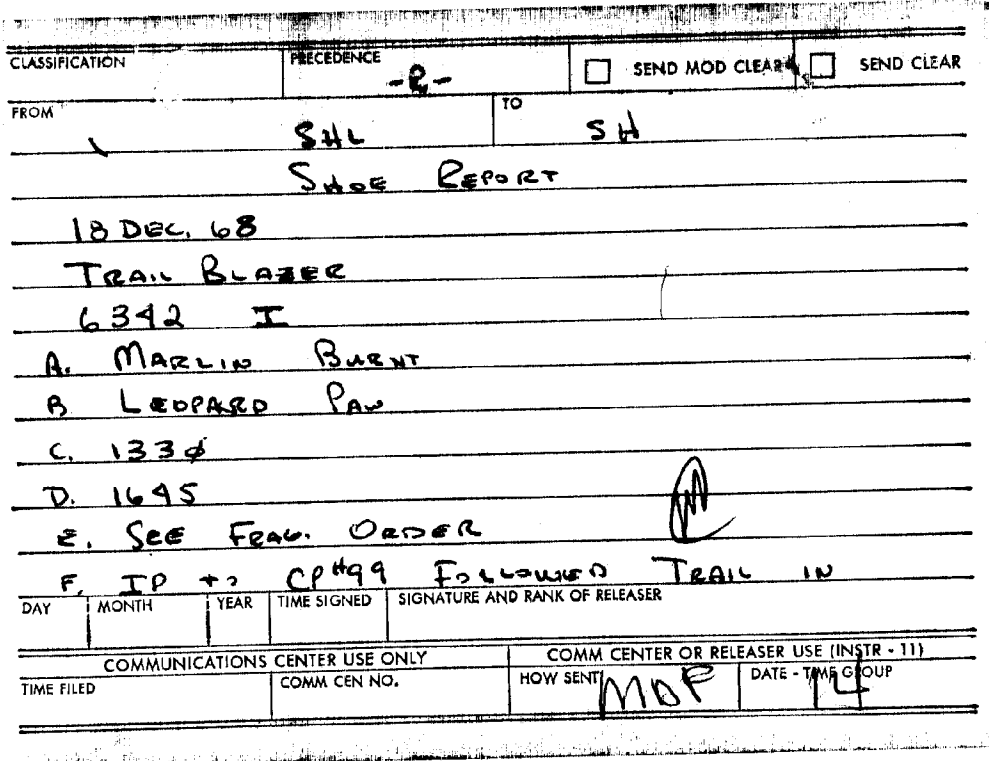 CLASSIFICATION PRECEDENCE -R- SEND MOD CLEAR SEND CLEAR
FROM SHL TO SH
SHOE REPORT
18 DEC. 68
TRAIL BLAZER
6342 I
A. MARLIN BURNT
B LEOPARD PAW
C. 133Ø
D. 1645
E. SEE FRAG. ORDER
F. IP to CP#99 FOLLOWED TRAIL IN
DAY MONTH YEAR TIME SIGNED SIGNATURE AND RANK OF RELEASER
COMMUNICATIONS CENTER USE ONLY COMM CENTER OR RELEASER USE (INSTR - 11)
TIME FILED COMM CEN NO. HOW SENT MDF DATE - TIME GROUP 14